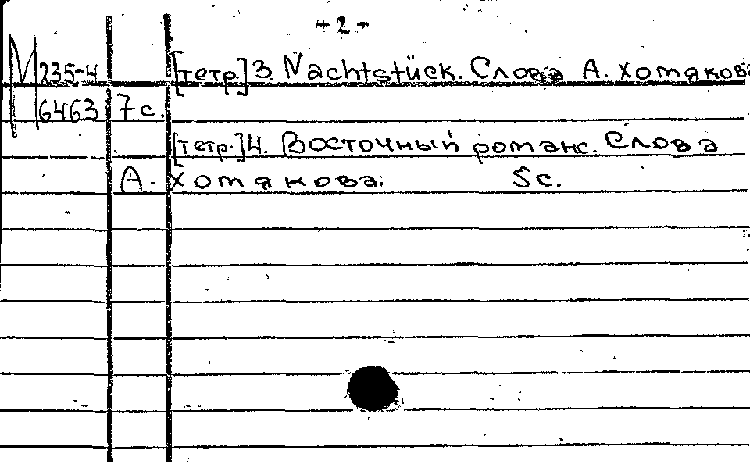 - 2 -
М 235-4 [тетр.] 3. Nachtstück. Слова А. Хомякова
6463 7 с.
[тетр.] 4. Восточный романс. Слова
А. Хомякова. 5 с.